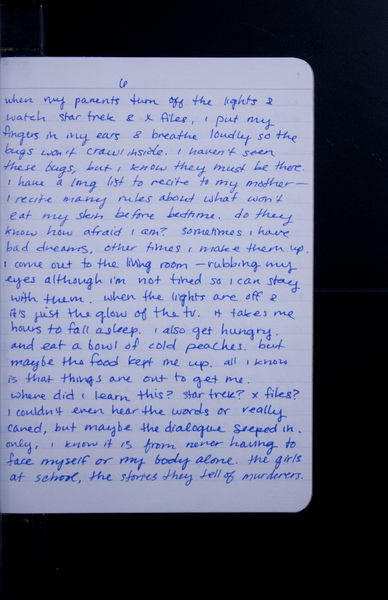 6
when my parents turn off the lights &
watch star trek & x files, i put my
fingers in my ears & breathe loudly so the
bugs won't crawl inside. i haven't seen
these bugs, but i know they must be there.
i have a long list to recite to my mother—
i recite many rules about what won't
eat my skin before bedtime. do they
know how afraid i am? sometimes i have
bad dreams, other times i make them up.
i come out to the living room — rubbing my
eyes although i'm not tired so i can stay
with them. when the lights are off &
it's just the glow of the tv. it takes me
hours to fall asleep. i also get hungry.
and eat a bowl of cold peaches. but
maybe the food kept me up. all i know
is that things are out to get me.
where did i learn this? star trek? x files?
i couldn't even hear the words or really
cared, but maybe the dialogue seeped in.
only, i know it is from never having to
face myself or my body alone. the girls
at school, the stories they tell of murderers.